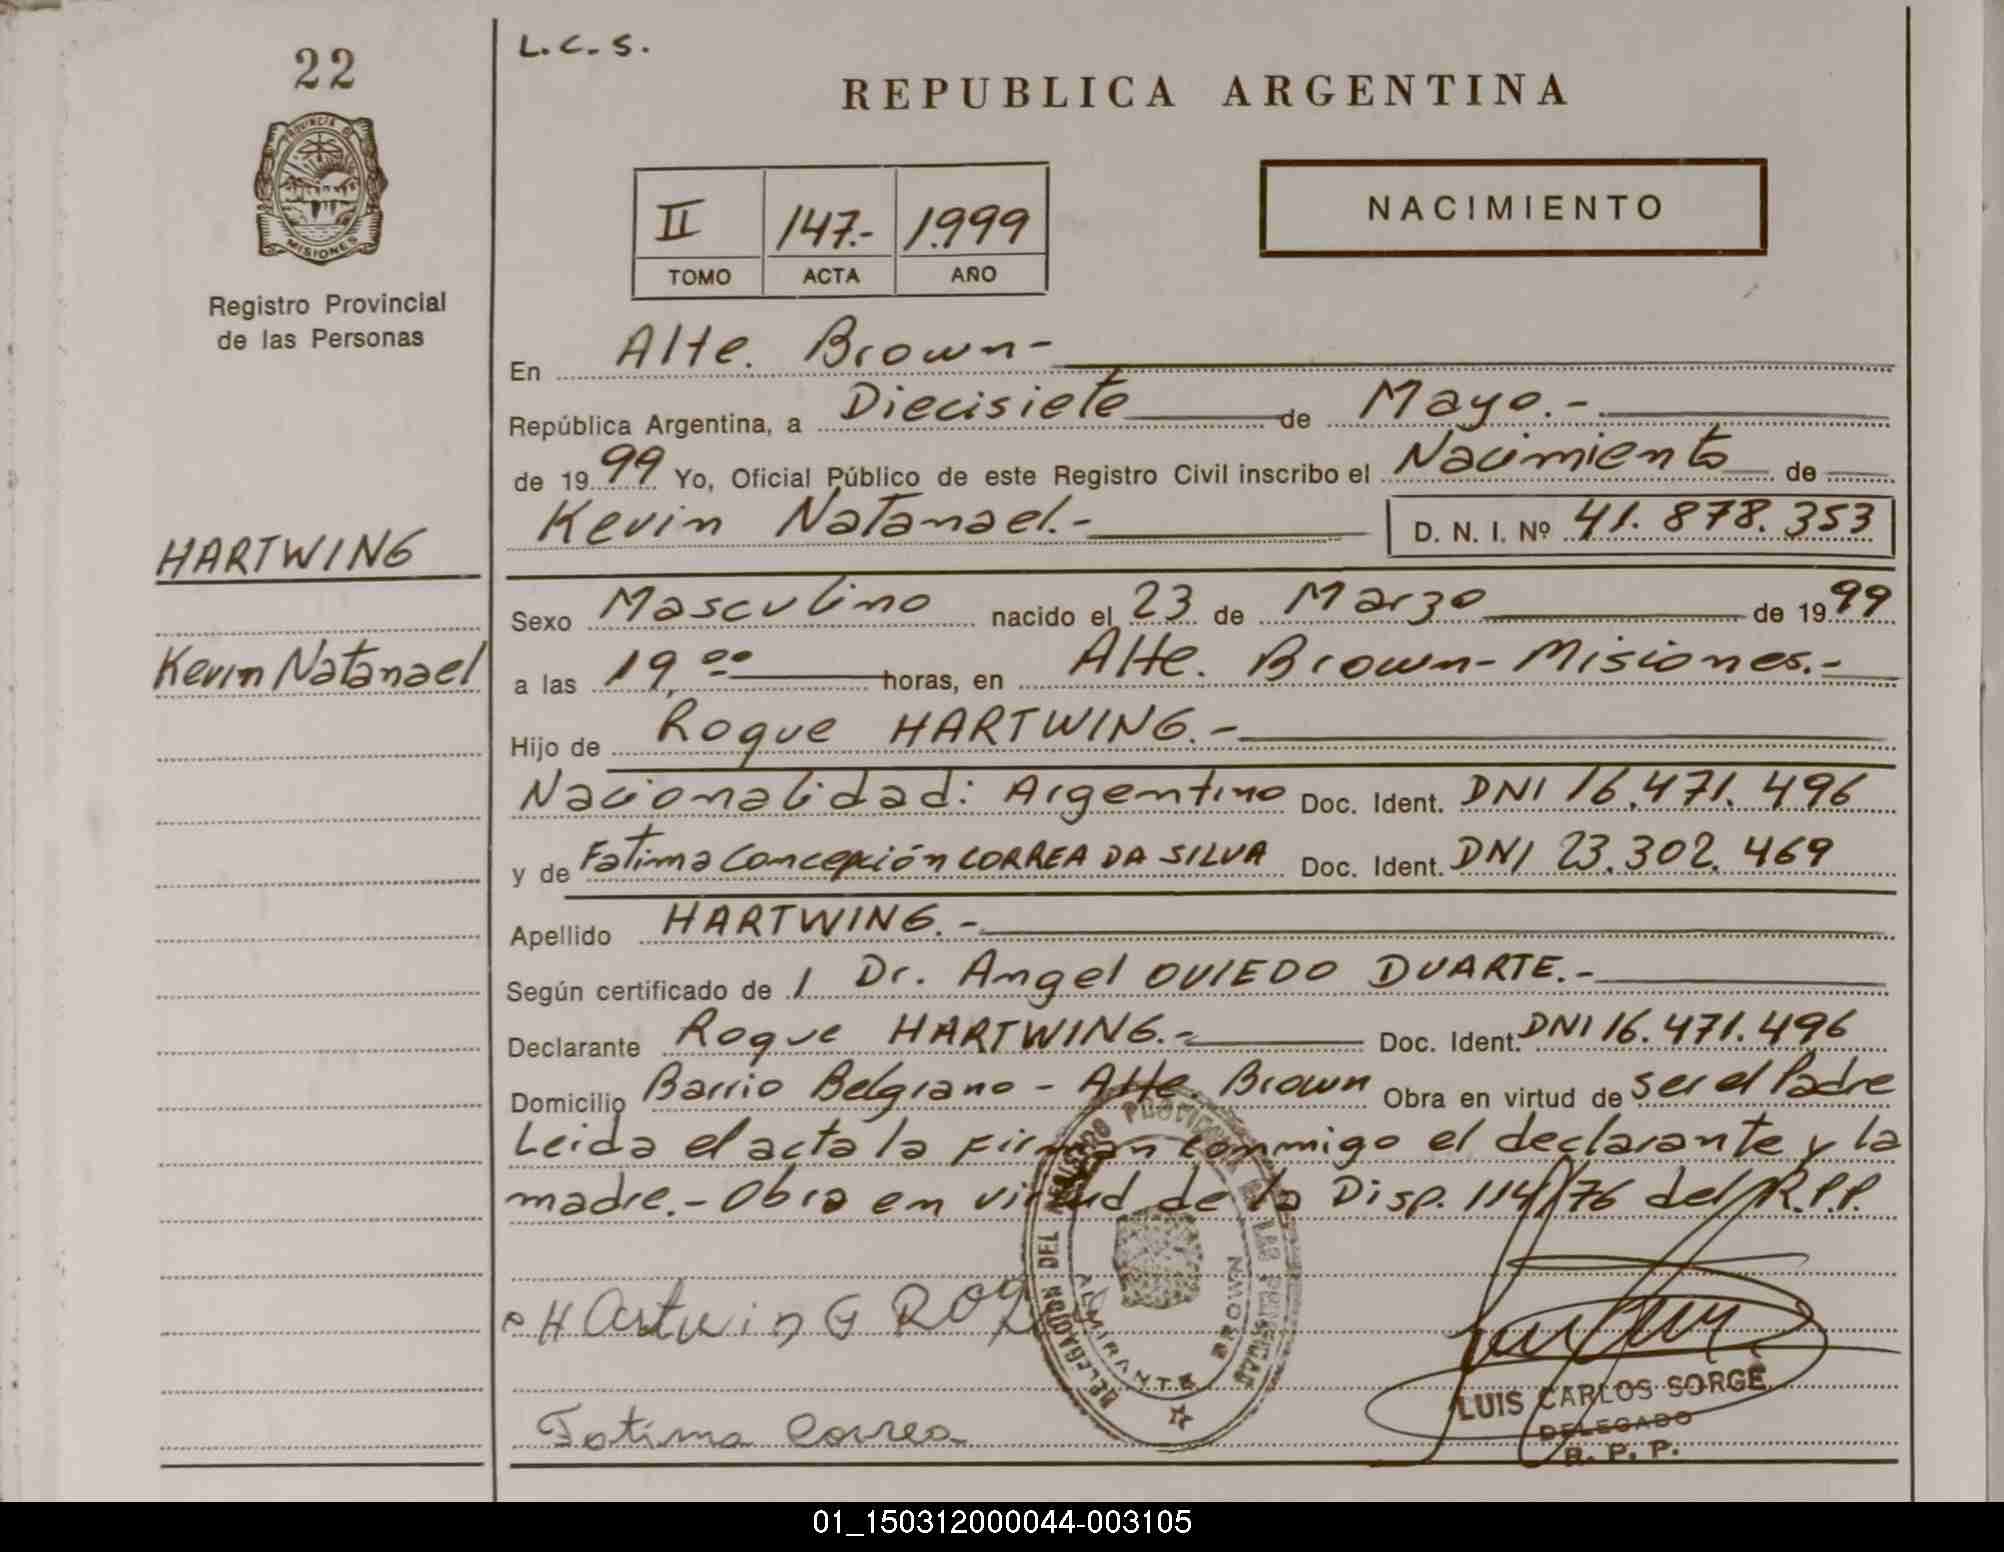 22
L.C.S.
REPUBLICA ARGENTINA
PROVINCIA DE
MISIONES
Registro Provincial
de las Personas
II 147.- 1.999
TOMO ACTA AÑO
NACIMIENTO
En Alte. Brown-
República Argentina, a Diecisiete de Mayo.-
de 1999 Yo, Oficial Público de este Registro Civil inscribo el Nacimiento de
Kevin Natanael.- D. N. I. Nº 41.878.353
HARTWING
Kevin Natanael
Sexo Masculino nacido el 23 de Marzo de 1999
a las 19,00 horas, en Alte. Brown-Misiones.-
Hijo de Roque HARTWING.-
Nacionalidad: Argentino Doc. Ident. DNI 16.471.496
y de Fatima Concepción CORREA DA SILVA Doc. Ident. DNI 23.302.469
Apellido HARTWING.-
Según certificado de / Dr. Angel OVIEDO DUARTE.-
Declarante Roque HARTWING.- Doc. Ident. DNI 16.471.496
Domicilio Barrio Belgrano - Alte. Brown Obra en virtud de ser el Padre
Leida el acta la firman conmigo el declarante y la
madre.- Obra en virtud de la Disp. 114/76 del R.P.P.
HArtwinG ROq
Fatima Correa
DELEGACION DEL REGISTRO PROVINCIAL DE LAS PERSONAS
ALMIRANTE BROWN
LUIS CARLOS SORGE
DELEGADO
R. P. P.
01_150312000044-003105